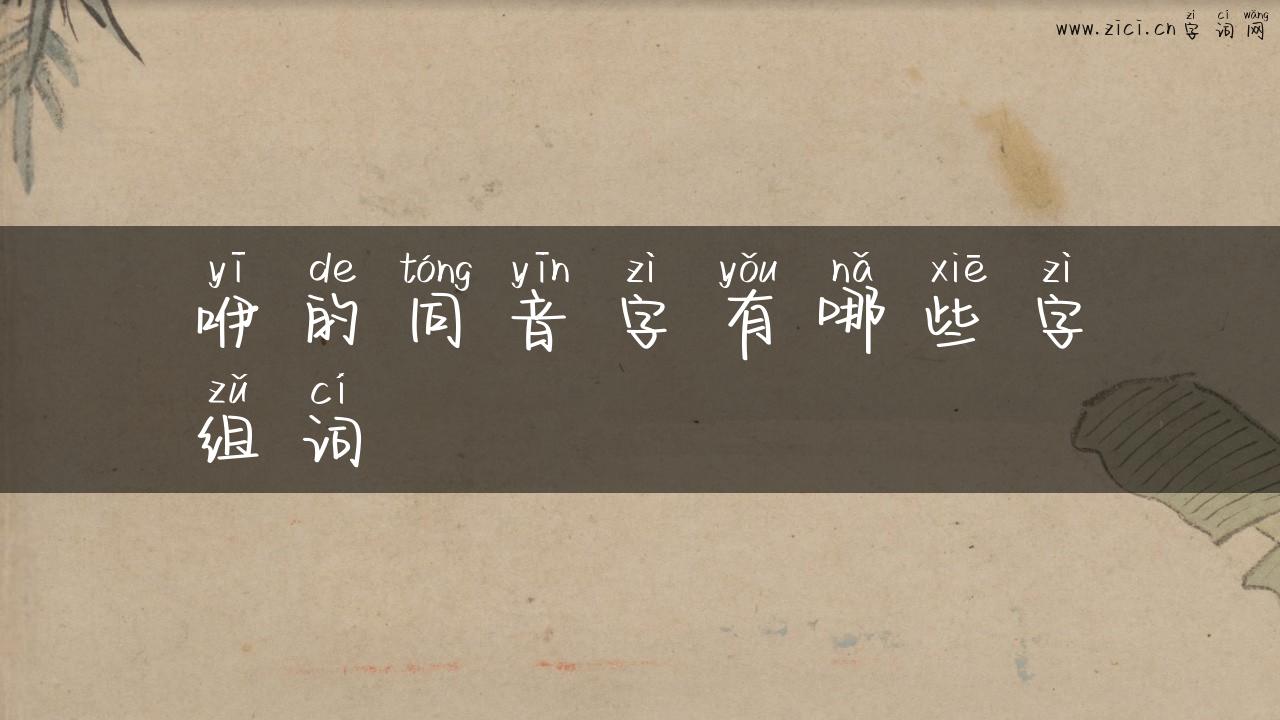 zì cí wǎng
www.zici.cn 字词网
yī de tóng yīn zì yǒu nǎ xiē zì
咿的同音字有哪些字
zǔ cí
组词